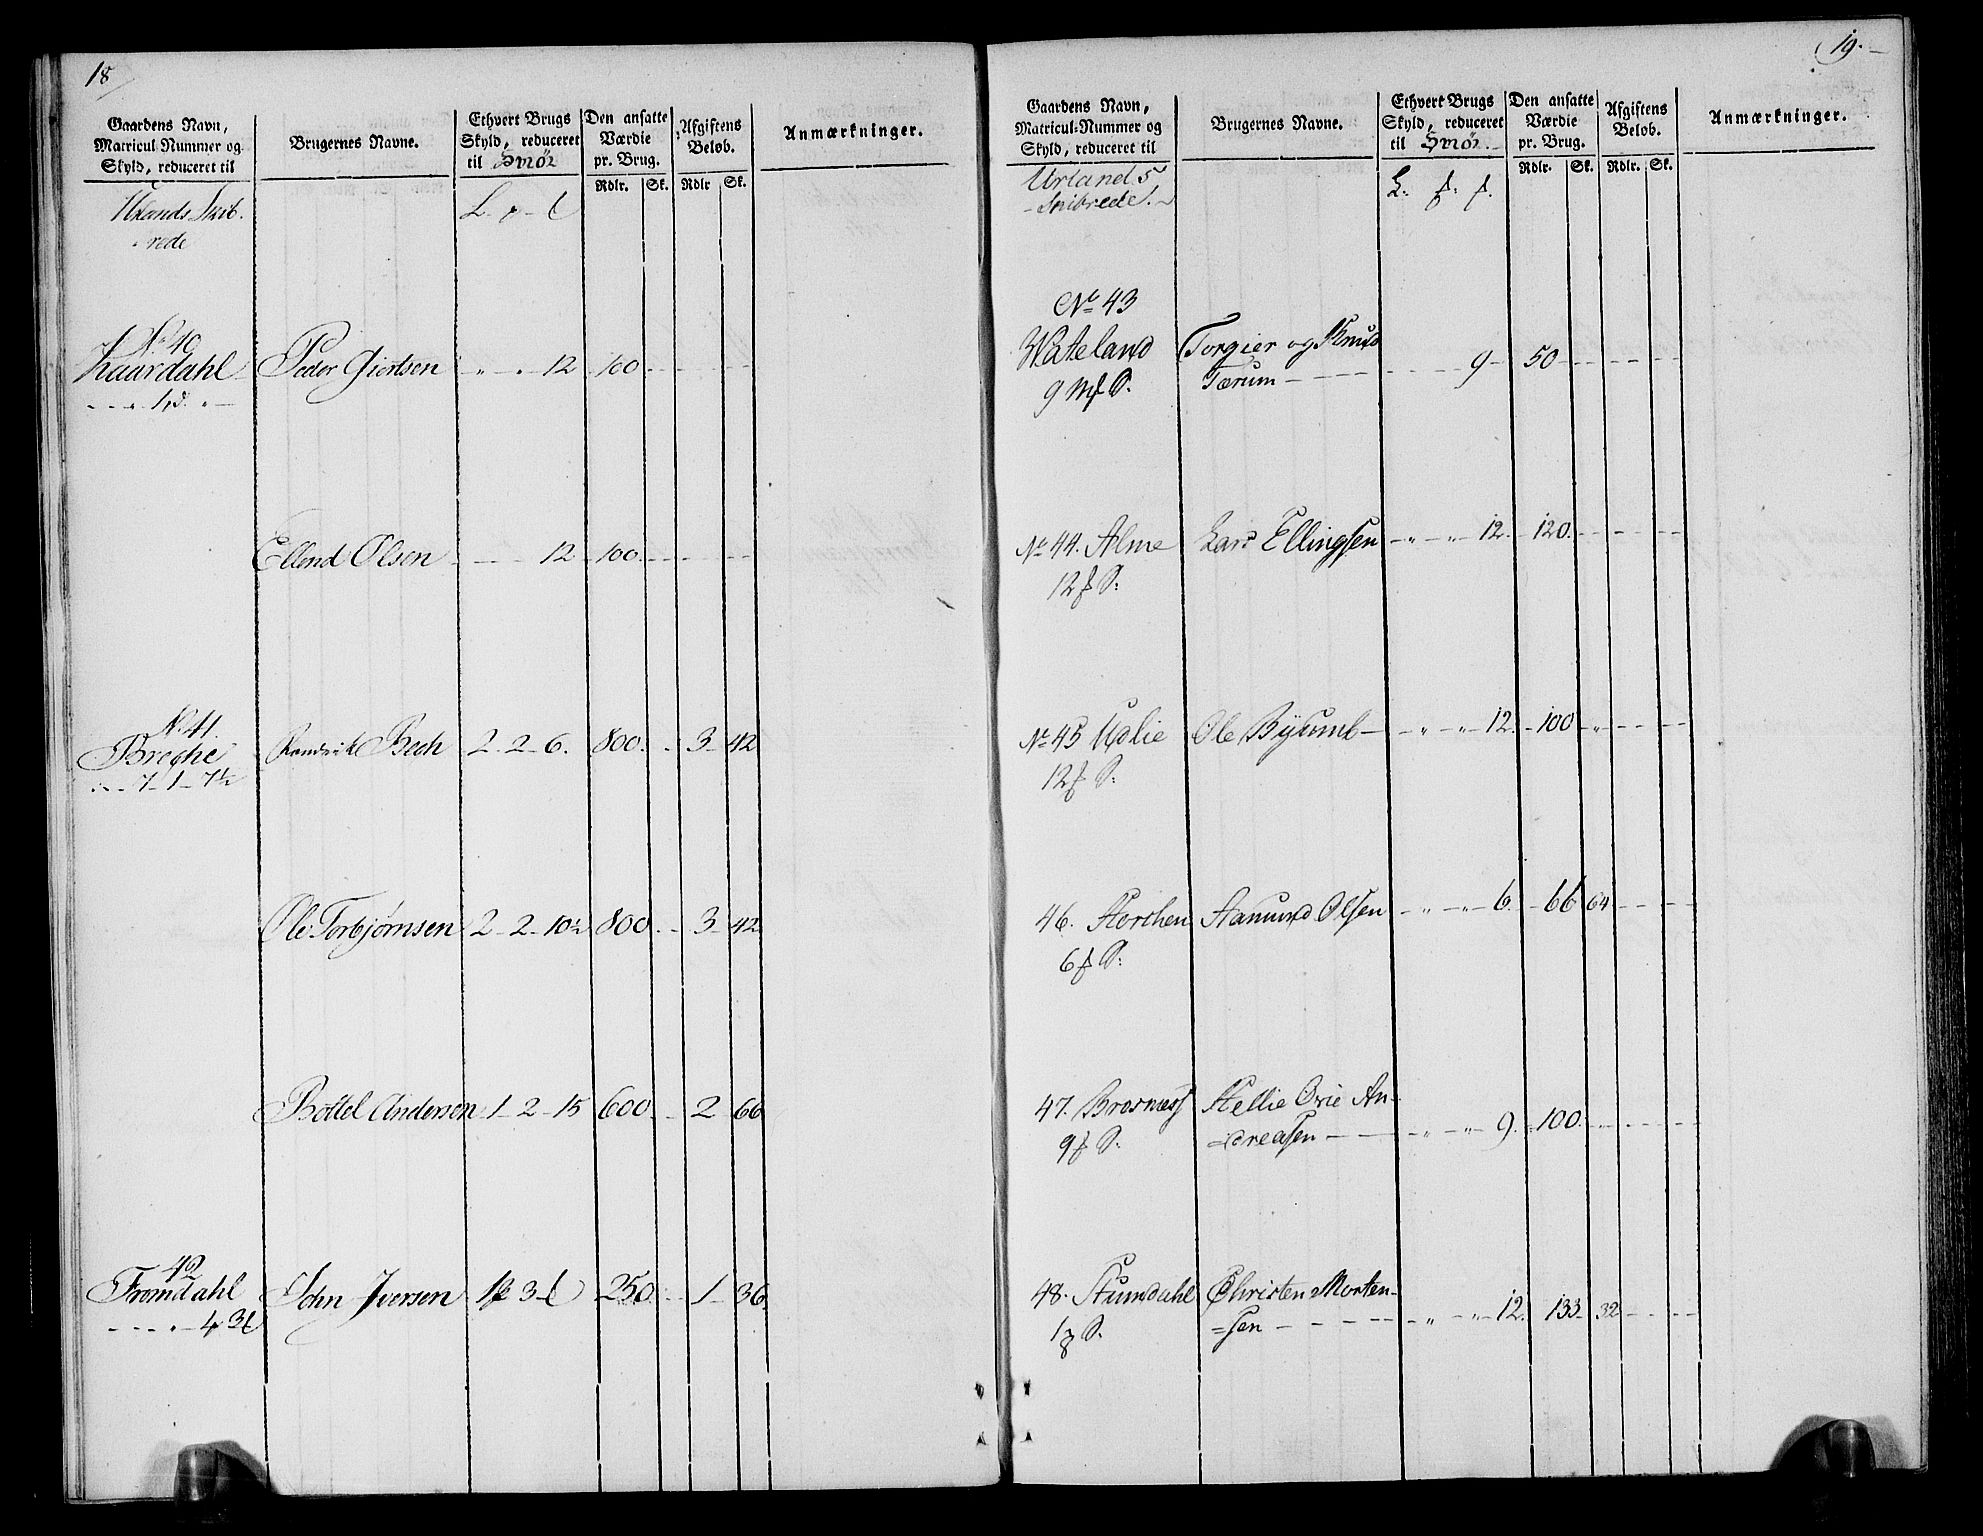 18
Gaardens Navn, Matricul Nummer og Skyld, reduceret til
Brugernes Navne.
Ethvert Brugs Skyld, reduceret til Smör
Den ansatte Værdie pr. Brug.
Afgiftens Beløb.
Anmærkninger.
Rdlr. Sk. Rdlr Sk.
Urlands Skib.
rede
No 40
Haardahl Peder Giertsen - " - " 12 100 - - -
Ellend Olsen - - - 12 100 - - -
No 41.
Breche Rendrik Bech 2 - 2 - 6. 800. - 3 - 42
- - 7 - 1 - 7½
Ole Torbjørnsen 2 - 2 - 10½ 800. - 3 - 42
Bottel Andersen 1 - 2 - 15 600. - 2 66
42
Fromdahl John Iversen 250 - 1 - 36
19.
Gaardens Navn, Matricul-Nummer og Skyld, reduceret til
Brugernes Navne.
Ethvert Brugs Skyld, reduceret til Smör.
Den ansatte Værdie pr. Brug.
Afgiftens Beløb.
Anmærkninger.
Rdlr. Sk. Rdlr. Sk.
Urlands
Skibrede.
No 43
Wateland Torgier og Knud
9 M S. Tærum - - - 9 - 50 - - -
No 44. Alme Lars Ellingsen - " - " - 12. - 120. - - -
12 S.
No 45 Udlie Ole Byumb - " - " - 12. - 100 - " - - -
12 S.
46. Horchen Aamund Olsen - " - " - 6. - 66 64 - - -
6 S.
47. Brosness Hellie Ovie An-
9 S. =dreasen - - - " - " - 9. - 100. - - -
48. Stumdahl Christen Morten-
S. =sen - - - " - " - 12. 133 32 - - -